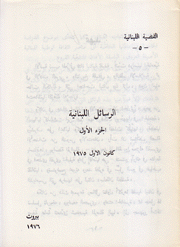 القضية اللبنانية
- ٥ -
الرسائل اللبنانية
الجزء الأول
كانون الاول ١٩٧٥
بيروت
١٩٧٦